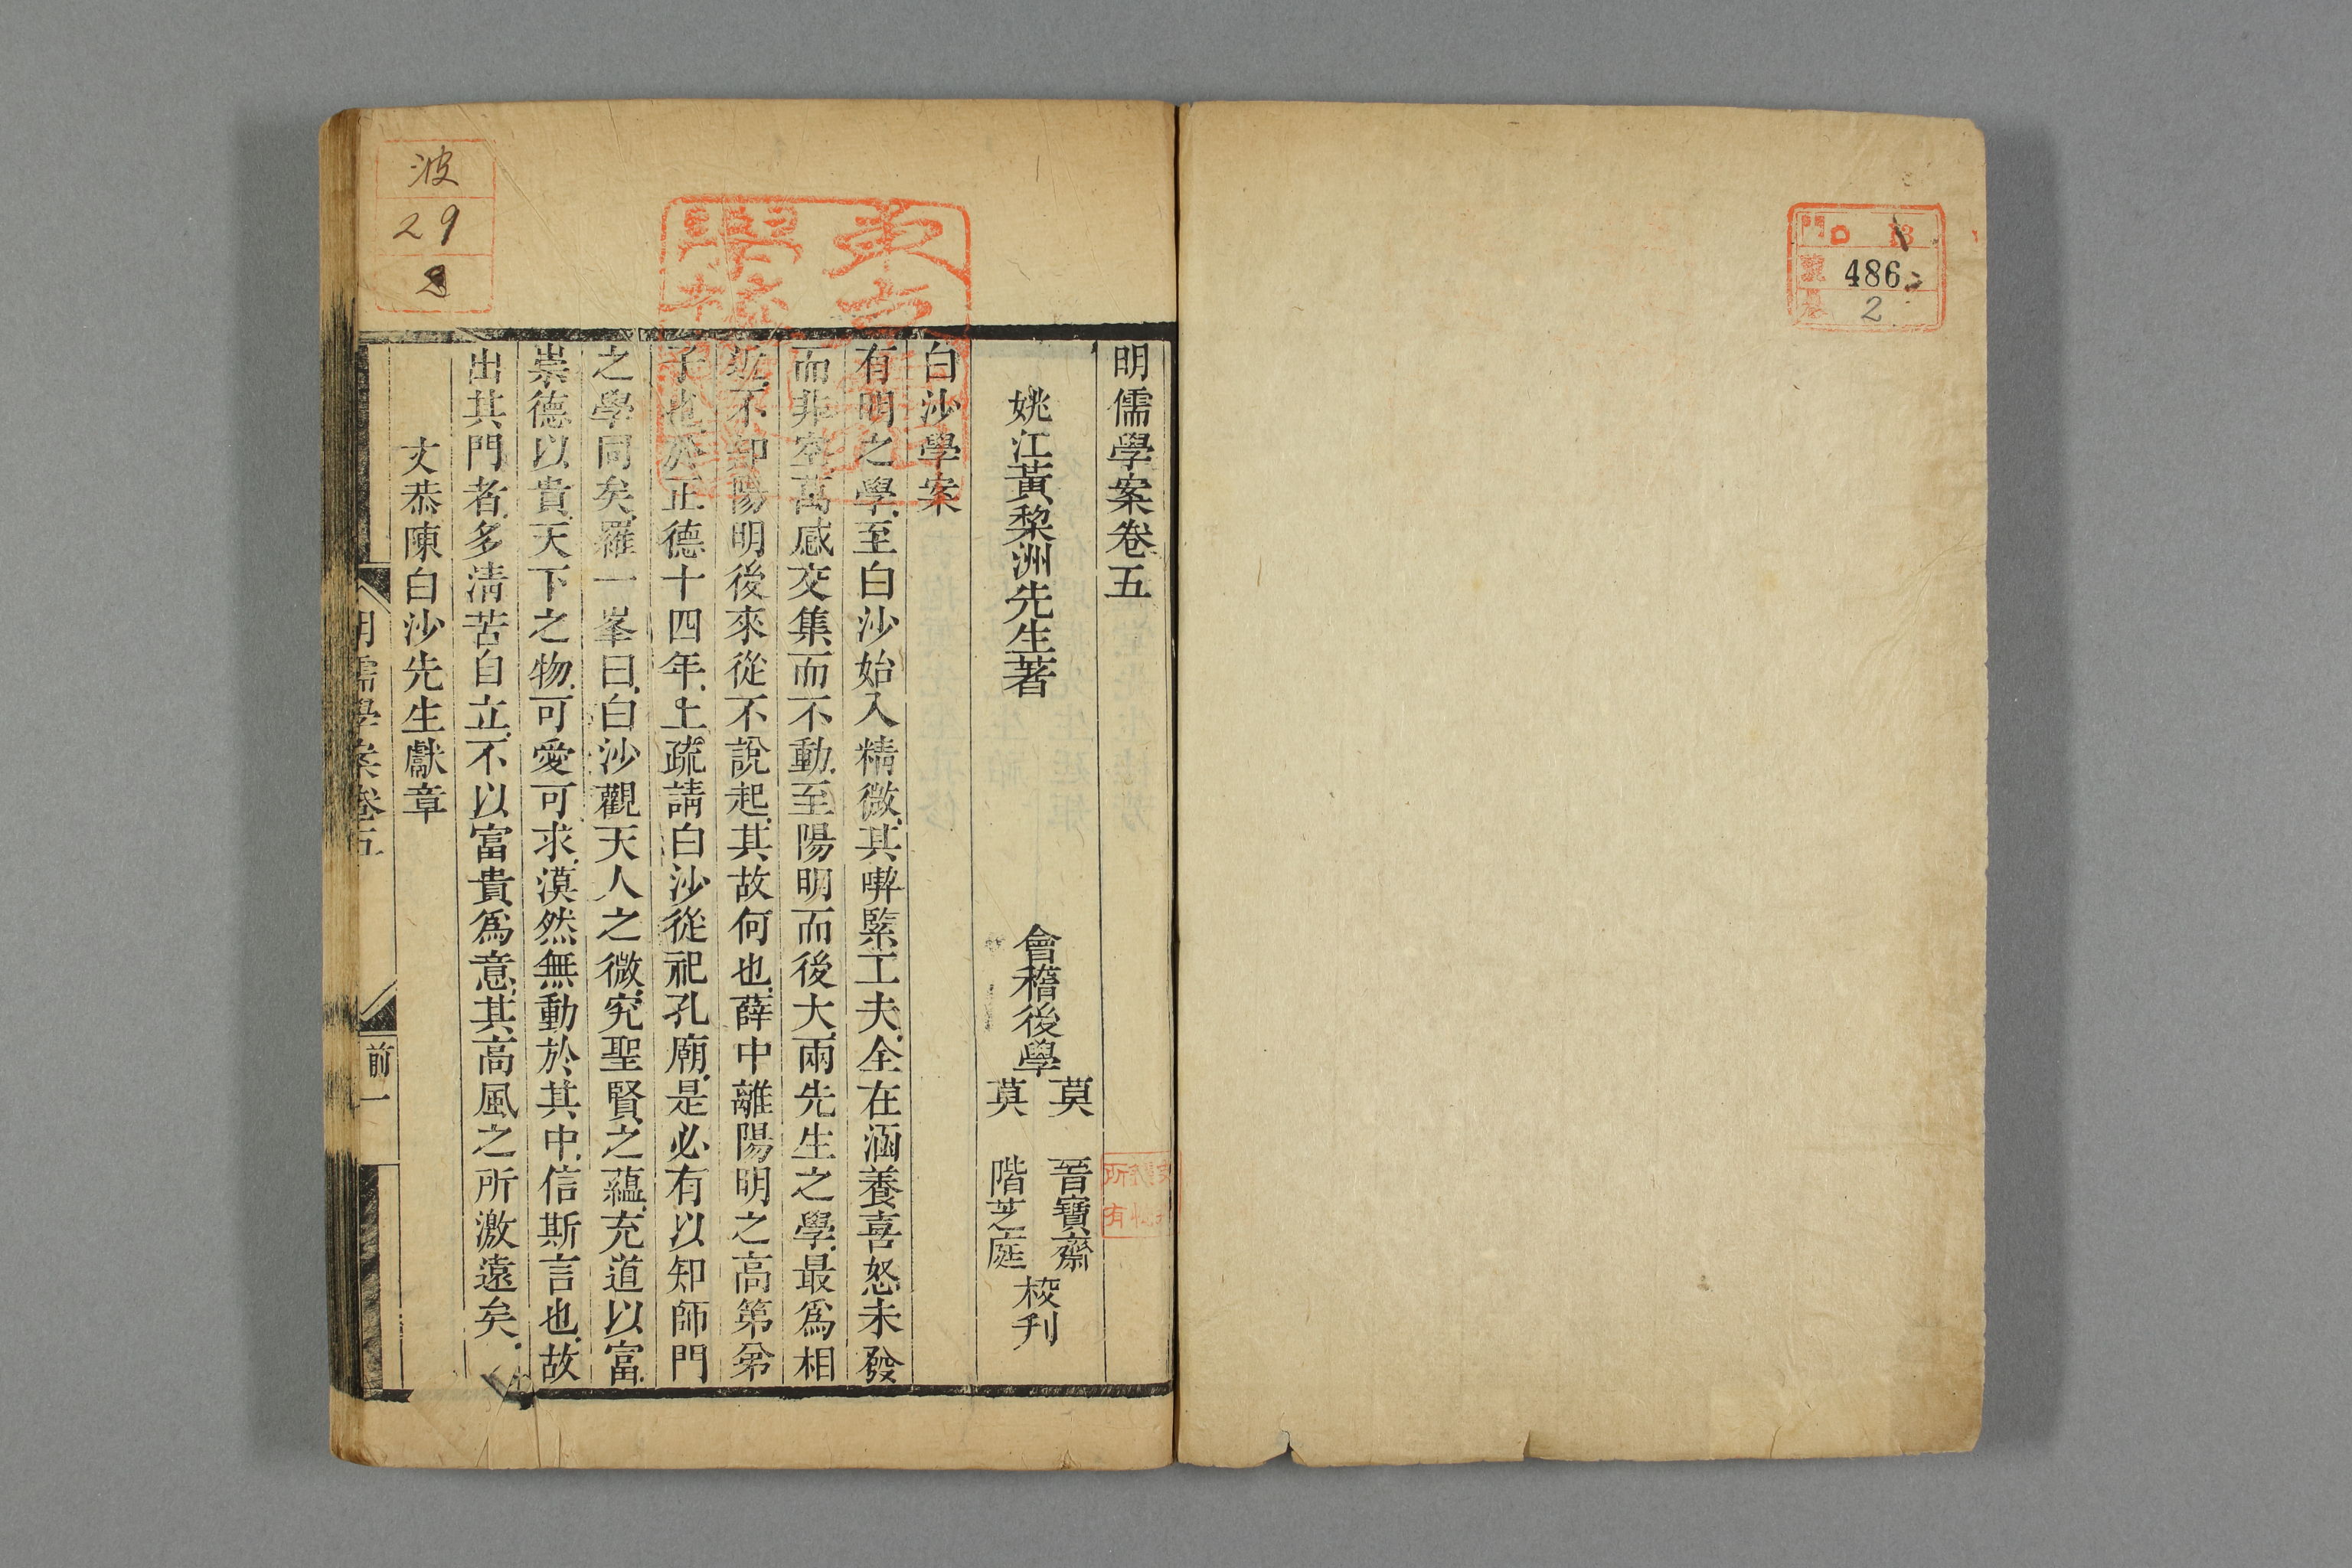 明儒學案卷五
姚江黃棃洲先生著
會稽後學
莫 晉寶齋
莫 階芝庭
校刋
白沙學案
有明之學至白沙始入精微其喫緊工夫全在涵養喜怒未發
而非空萬感交集而不動至陽明而後大兩先生之學最爲相
近不知陽明後來從不說起其故何也薛中離陽明之高第弟
子也於正德十四年上疏請白沙從祀孔廟是必有以知師門
之學同矣羅一峯曰白沙觀天人之微究聖賢之蘊充道以富
崇德以貴天下之物可愛可求漠然無動於其中信斯言也故
出其門者多淸苦自立不以富貴爲意其高風之所激遠矣
文恭陳白沙先生獻章
明儒學案卷五
前一
波
29
門
號
486
2
所有